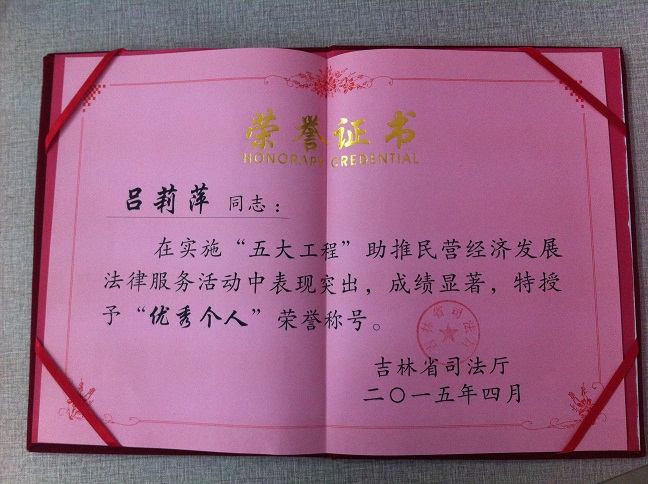 荣誉证书
HONORARY CREDENTIAL
吕莉萍 同志：
在实施“五大工程”助推民营经济发展
法律服务活动中表现突出，成绩显著，特授
予“优秀个人”荣誉称号。
吉林省司法厅
吉林省司法厅
二〇一五年四月